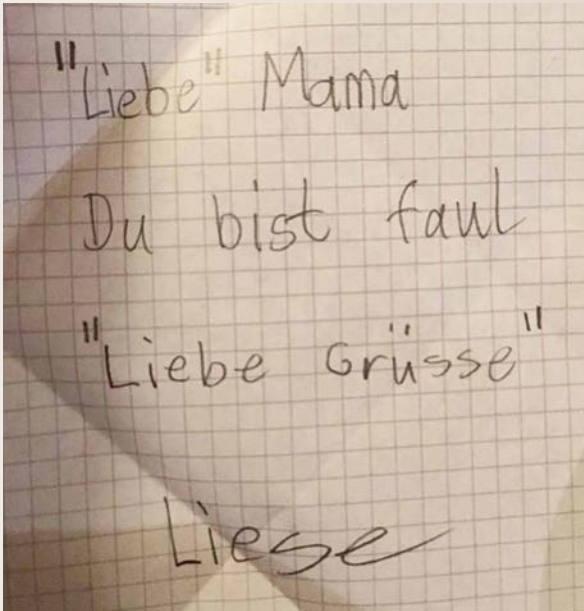 "Liebe" Mama
Du bist faul
"Liebe Grüsse"
Liese